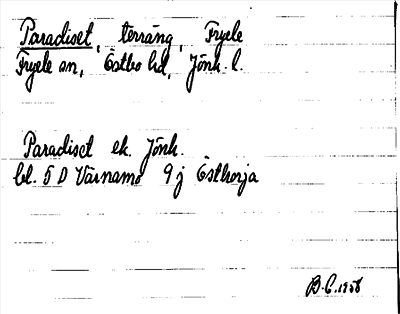 Paradiset, terräng, Fryele
Fryele sn, Östbo hd, Jönk. l.
Paradiset ek. Jönk.
bl. 5 D Värnamo 9 j Östhorja
B.C. 1956